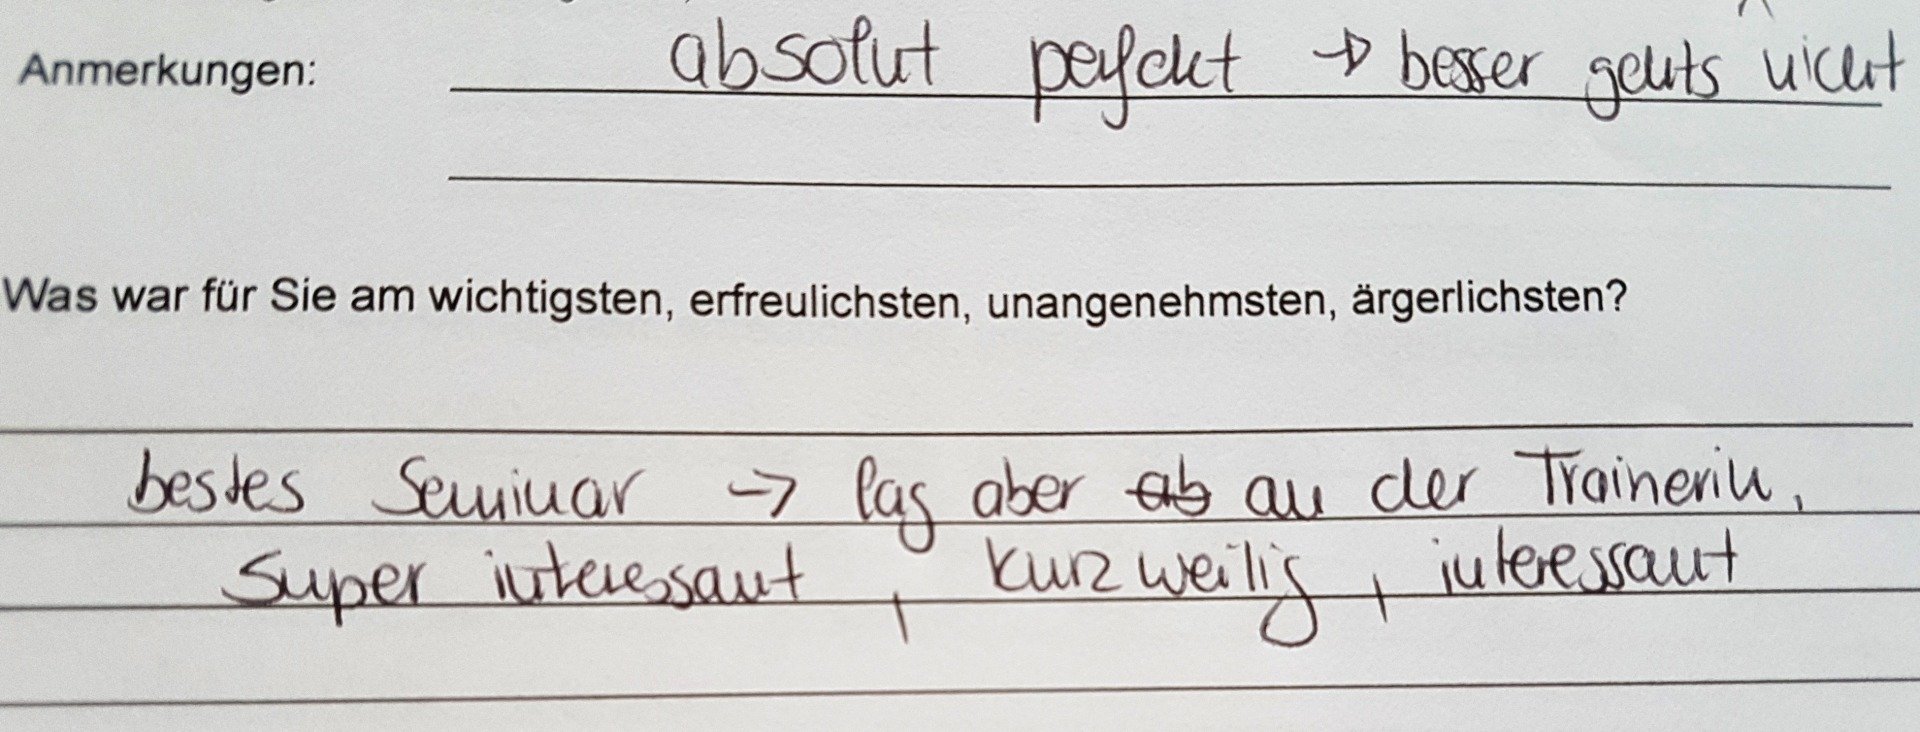 Anmerkungen: absolut perfekt → besser gehts nicht
Was war für Sie am wichtigsten, erfreulichsten, unangenehmsten, ärgerlichsten?
bestes Seminar → lag aber ~~ab~~ an der Trainerin,
Super interessant, kurzweilig, interessant